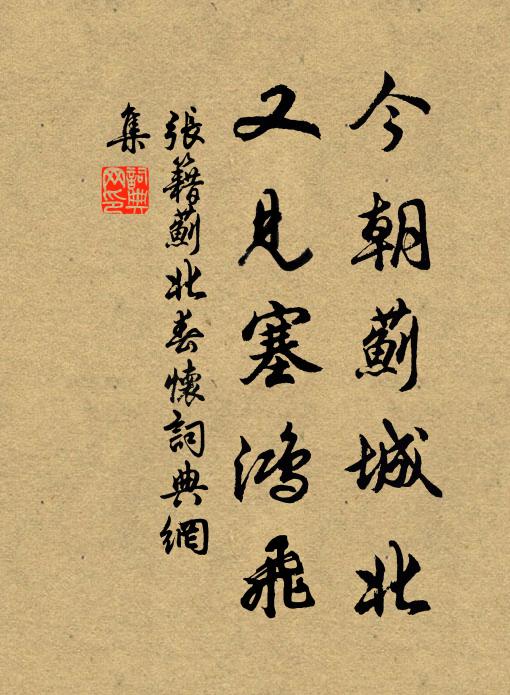 今朝薊城北
又見塞鴻飛
張籍薊北春懷詞典網
集
詞典網印